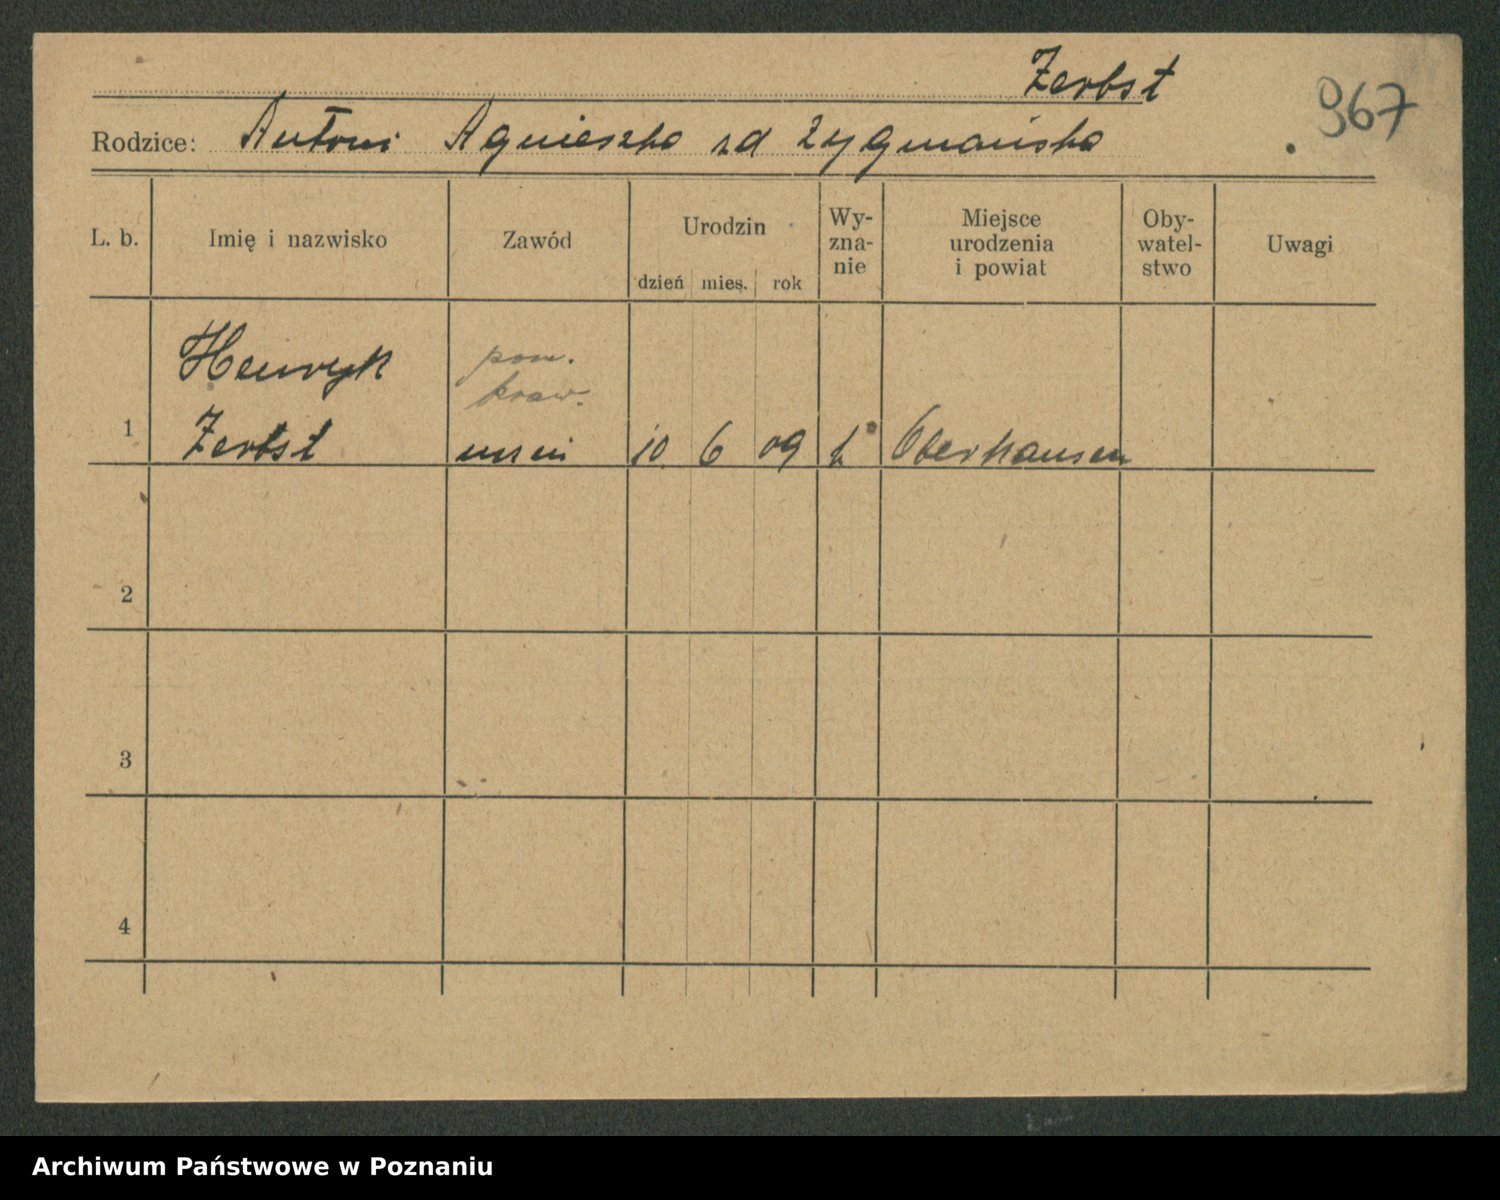 Zerbst
967
Rodzice: Antoni Agnieszka zd Zygmańska
L. b.
Imię i nazwisko
Zawód
Urodzin
dzień mies. rok
Wy-
zna-
nie
Miejsce
urodzenia
i powiat
Oby-
watel-
stwo
Uwagi
Henryk
pom.
kraw.
1 Zerbst uczeń 10 6 09 k Oberhausen
2
3
4
Archiwum Państwowe w Poznaniu